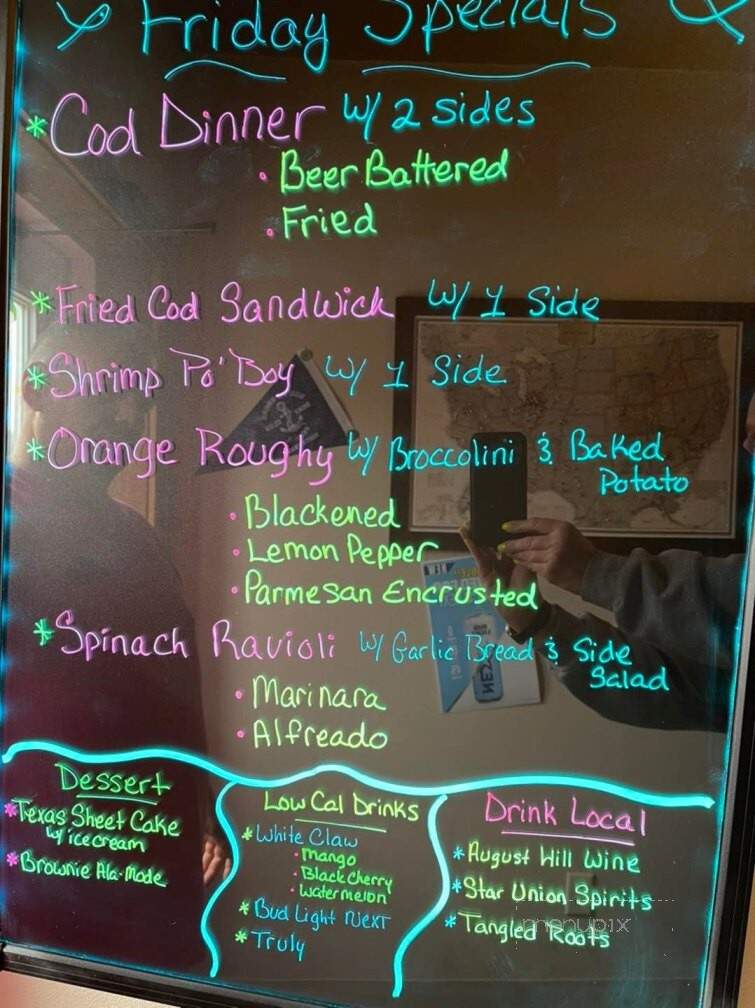 Friday Specials
*Cod Dinner w/ 2 sides
• Beer Battered
• Fried
*Fried Cod Sandwick w/ 1 Side
*Shrimp Po' Boy w/ 1 Side
*Orange Roughy w/ Broccolini & Baked
Potato
• Blackened
• Lemon Pepper
• Parmesan Encrusted
*Spinach Ravioli w/ Garlic Bread & Side
Salad
• Marinara
• Alfreado
Dessert
*Texas Sheet Cake
w/ ice cream
*Brownie Ala-Mode
Low Cal Drinks
*White Claw
• Mango
• Black Cherry
• Watermelon
*Bud Light NEXT
*Truly
Drink Local
*August Hill Wine
*Star Union Spirits
*Tangled Roots
menupix